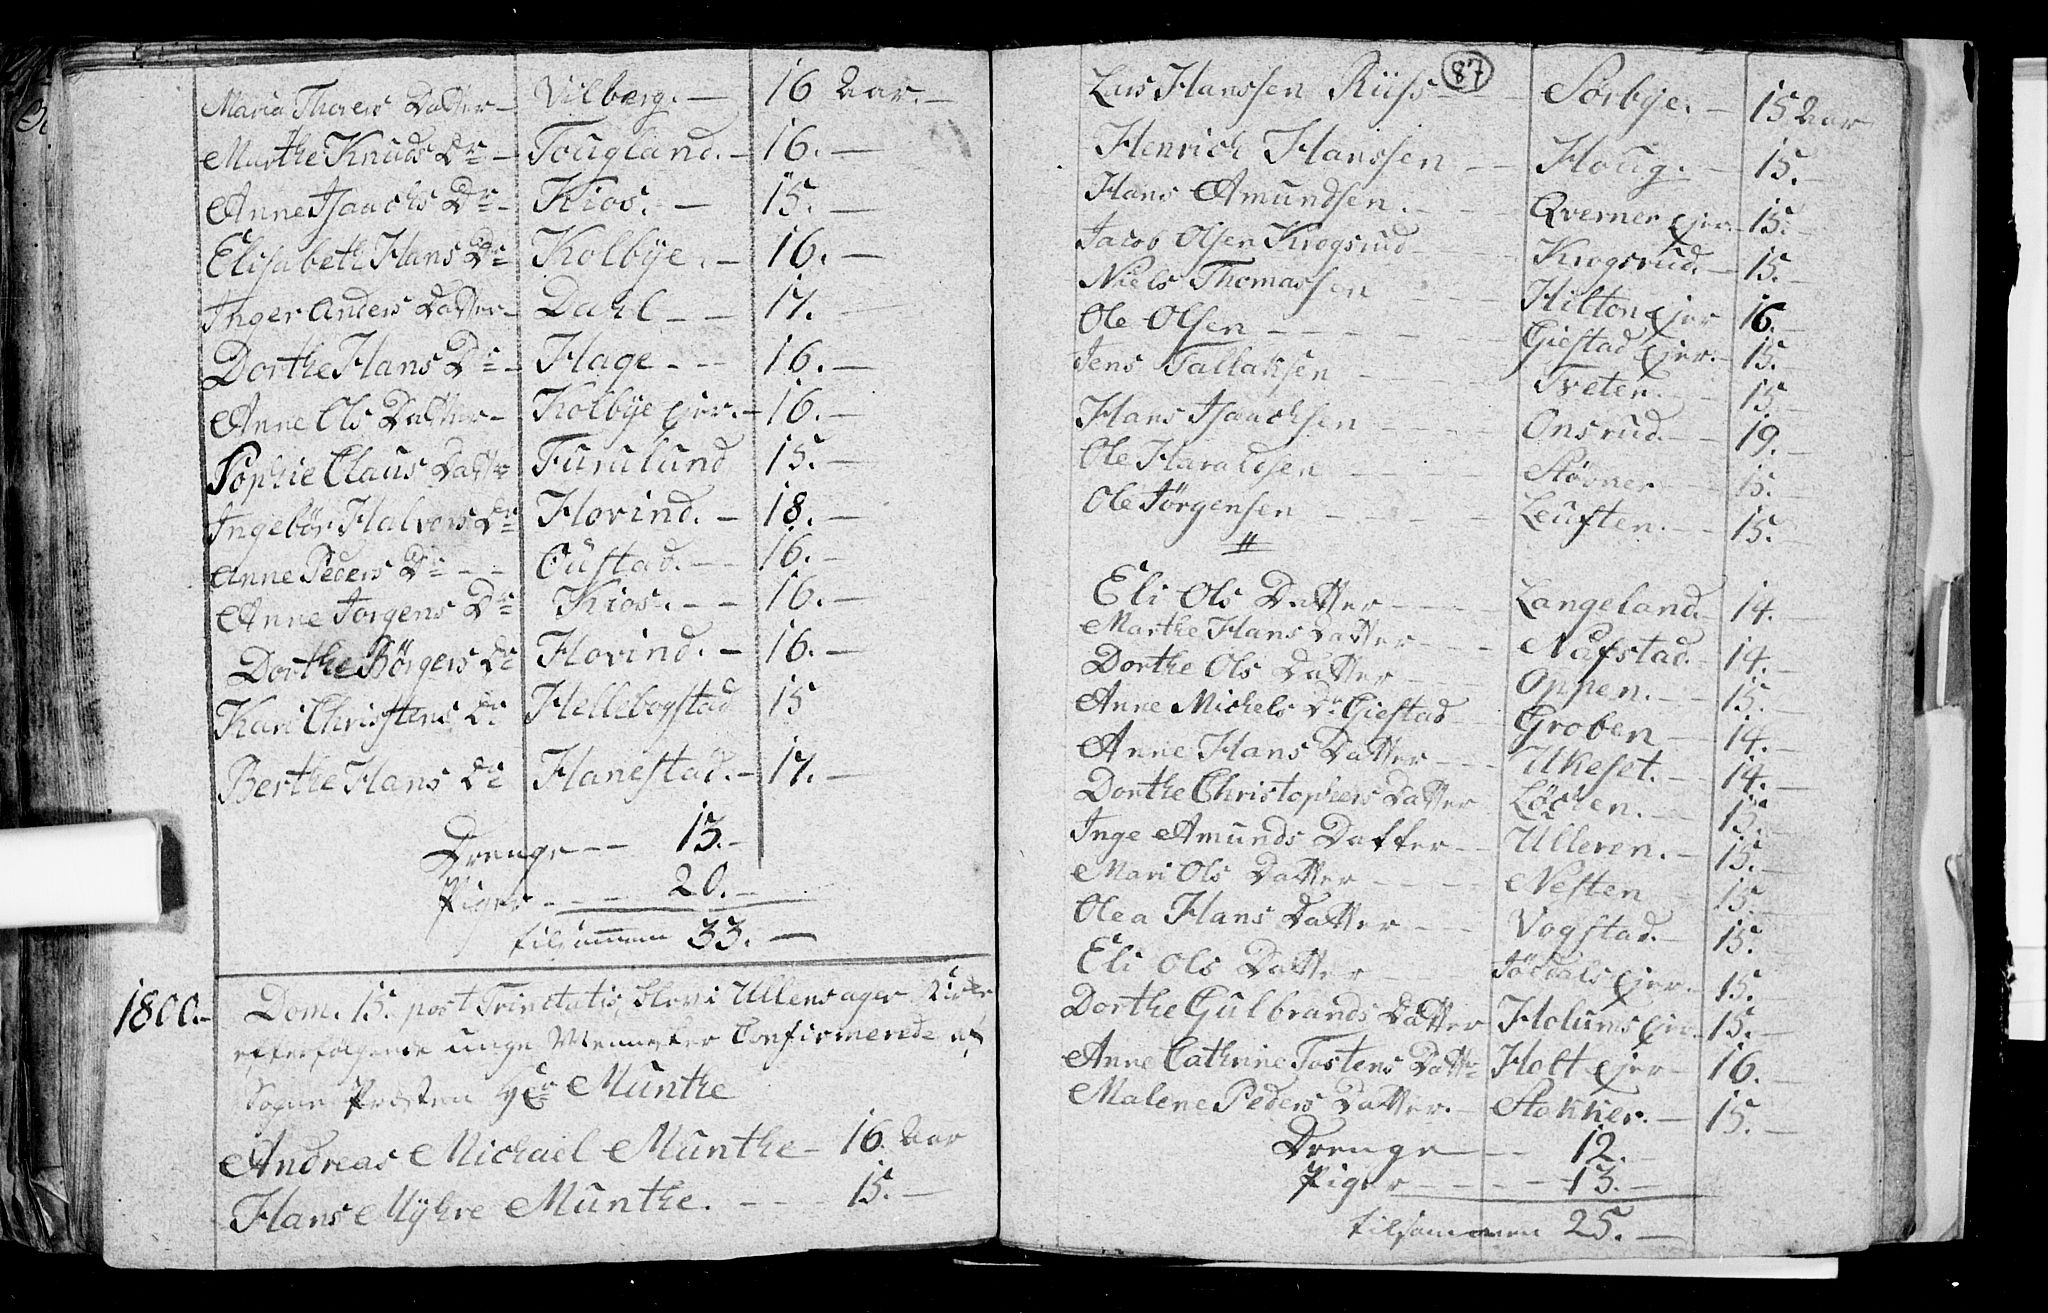 Maria Thorers Datter — Vilberg. — 16 Aar. —
Marthe Knuds Dr — Tougland. — 16. —
Anne Isaachs Dr — Kios. — 15. —
Elisabeth Hans Dr Kolbye. — 16. —
Inger Anders Datter — Dahl — — 17. —
Dorthe Hans Dr — Hage — — 16. —
Anne Ols Datter — Kolbye Ejer. — 16. —
Sophie Claus Datter Furulund 15. —
Ingebör Halvors Dr Hovind. — 18. —
Anne Peders Dr — — Oustad. — 16. —
Anne Jorgens Dr Kios. — — 16. —
Dorthe Börgers Dr Hovind. — 16. —
Kari Christens Dr Hellebogstad 15
Berthe Hans Dr Hanestad. — 17. —
Drenge — — 13. —
Piger — — — 20. —
tilsammen 33. —
1800. — Dom. 15. post Trinitatis, blev i Ullensager Kirke
efterfølgende unge Mennesker Confirmerede af
Sogne Præsten Hr Munthe
Andreas Michael Munthe — 16 Aar
Hans Myhre Munthe. — — — 15. —
87
Lars Hanssen Riis — Sorbye. — 15 Aar
Henrich Hanssen — — Houg. — 15. —
Hans Amundsen. — — — Qverner Ejer. — 15. —
Jacob Olsen Krogsrud — — — Krogsrud. — 15. —
Niels Thomassen — — — Hilton Ejer 16. —
Ole Olsen — — — — — Giestad Ejer. — 15. —
Jens Tallaksen — — — — Tveten. — — 15. —
Hans Isaachsen — — — — Onsrud. — — 19. —
Ole Haraldsen — — — — Stövner — — 15. —
Ole Jörgensen — — — — Leüften. — — 15. —
〃
Eli Ols Datter — — — — Langeland. — 14. —
Marthe Hans Datter — — — Nafstad. — 14. —
Dorthe Ols Datter — — — Oppen. — — 15. —
Anne Michels Dr Giestad — — Groben — 14. —
Anne Hans Datter — — — Ukeset. — — 14. —
Dorthe Christophers Datter Löchen. — 15. —
Inge Amunds Datter — — Ulleren. — 15. —
Mari Ols Datter — — — — Nesten — 15. —
Olea Hans Datter — — — Vogstad. — 15. —
Eli Ols Datter — — — — Jödals Ejer. — 15. —
Dorthe Gulbrands Datter Holums Ejer — 15. —
Anne Cathrine Tostens Datter Holt Ejer — 16. —
Malene Peders Datter. — Stokker. — 15. —
Drenge — — 12. —
Piger — — — — 13. —
tilsammen 25. —